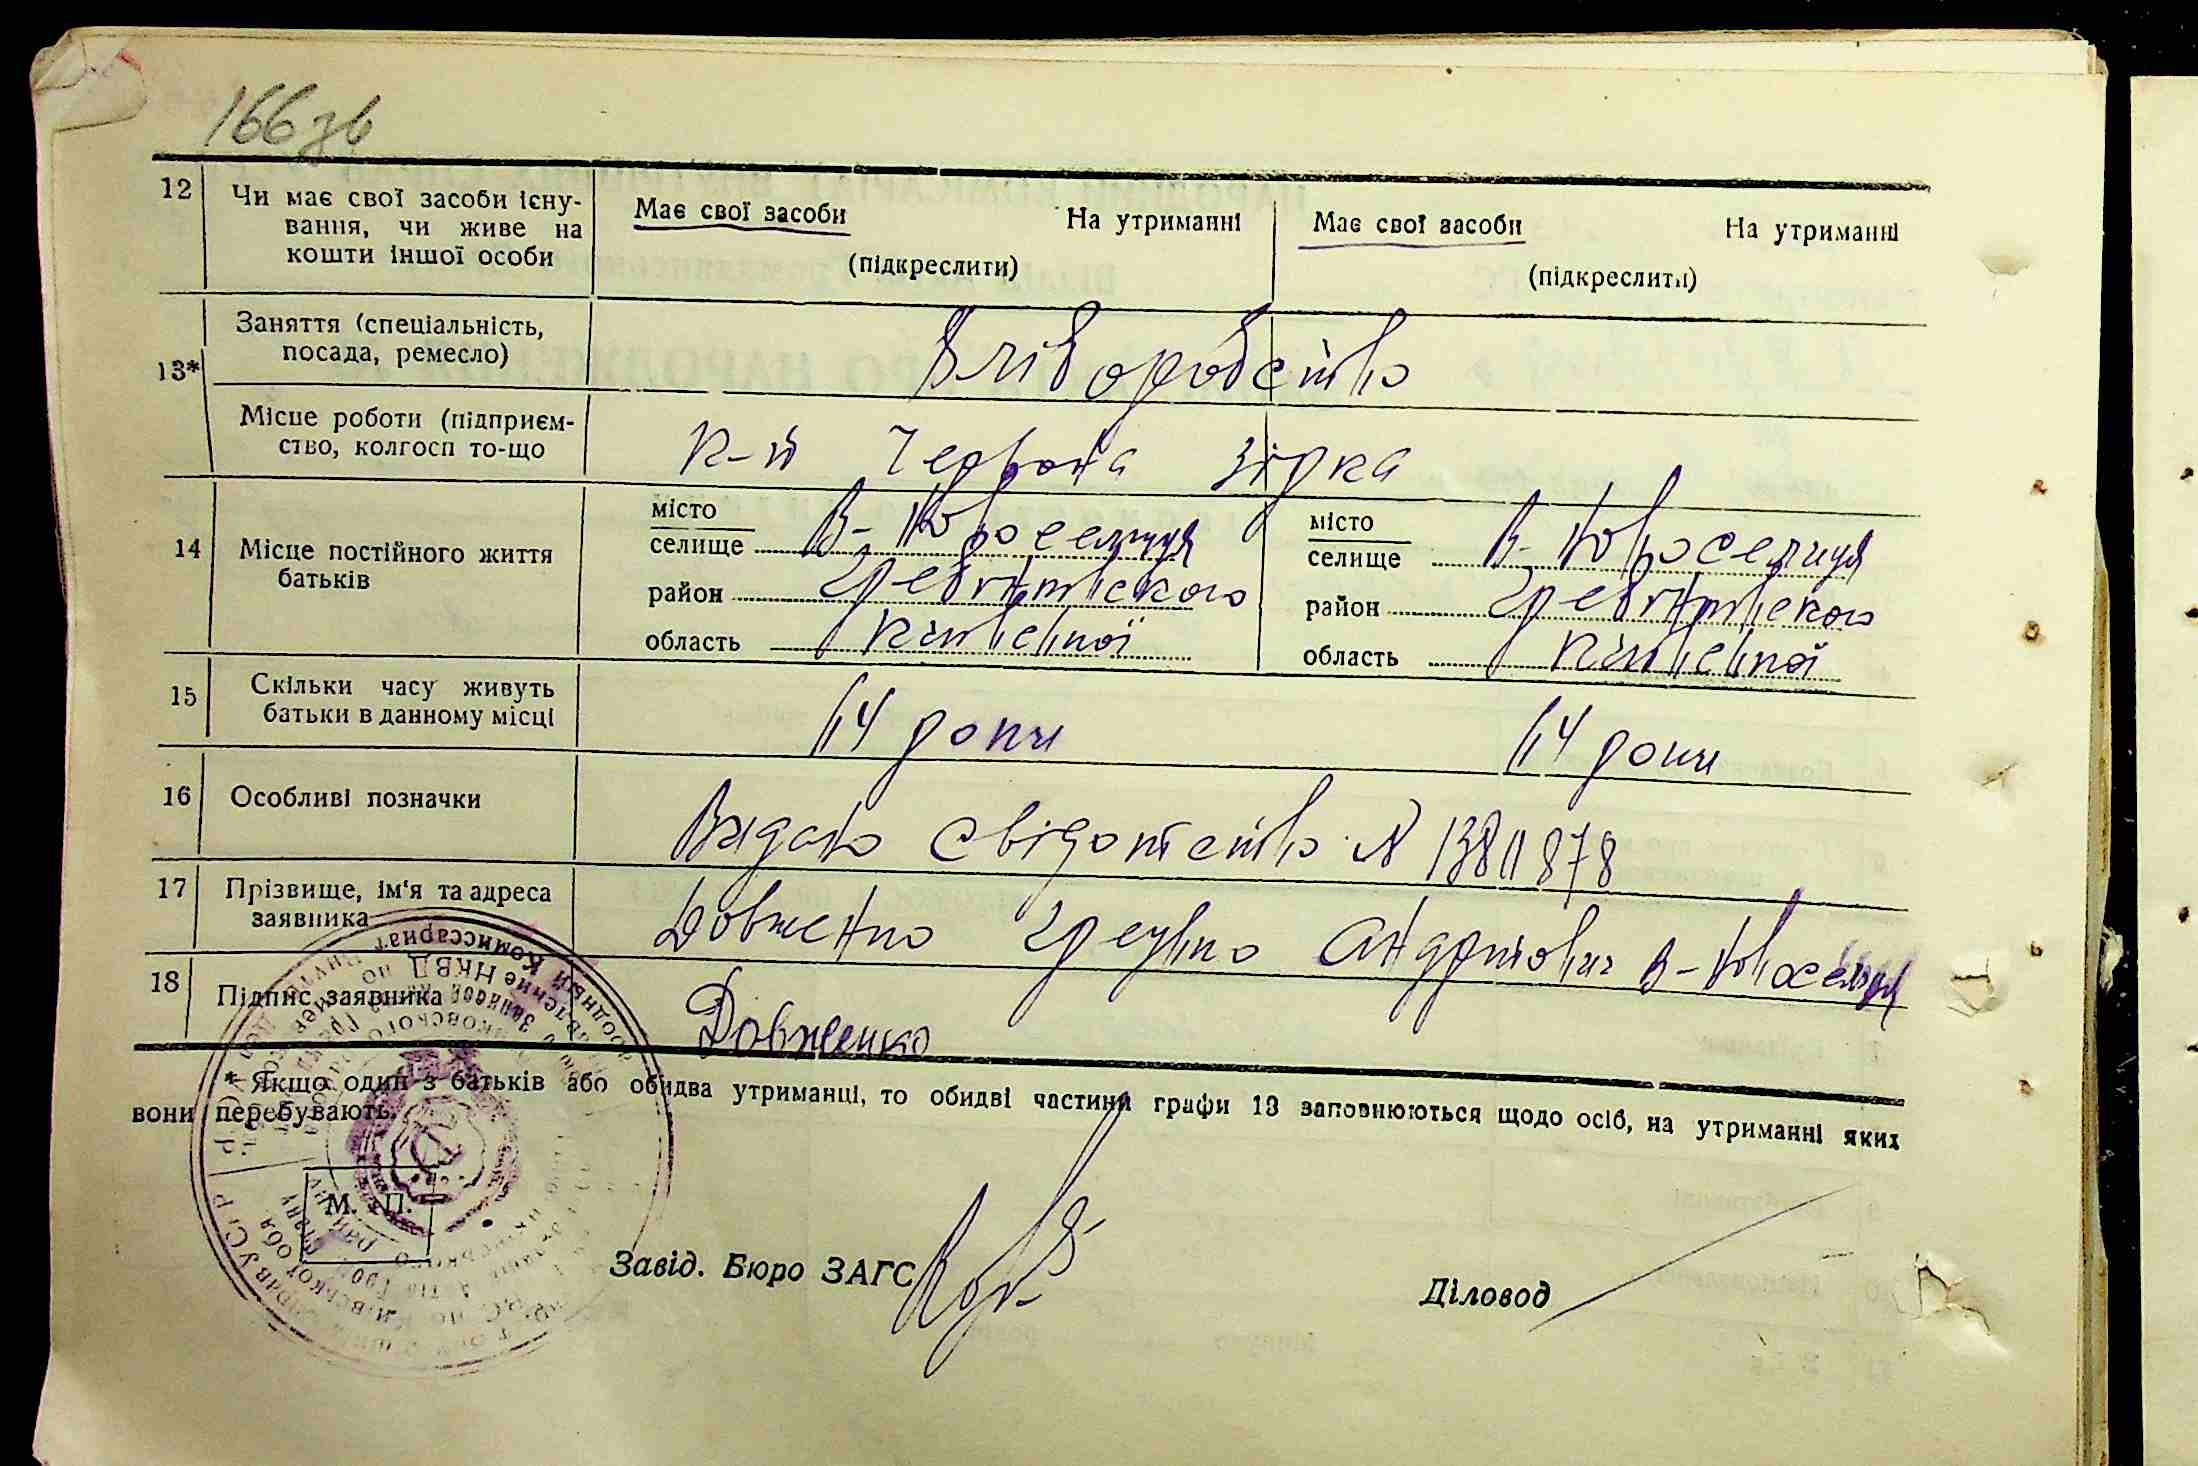 166зв
12 Чи має свої засоби існу-
вання, чи живе на
кошти іншої особи
Має свої засоби На утриманні
(підкреслити)
Має свої засоби На утриманні
(підкреслити)
13*
Заняття (спеціальність,
посада, ремесло)
Хліборобство
Місце роботи (підприєм-
ство, колгосп то-що
к-п Червона зірка
14 Місце постійного життя
батьків
місто
селище В-Новоселиця
район Гребінківского
область Київської
місто
селище В-Новоселиця
район Гребінківского
область Київської
15 Скільки часу живуть
батьки в данному місці
14 роки
14 роки
16 Особливі позначки
Видано свідотство № 1380878
17 Прізвище, ім'я та адреса
заявника
Довженко Андрійович В-Новоселиця
18 Підпис заявника
Довженко
* Якщо один з батьків або обидва утриманці, то обидві частини графи 13 заповнюються щодо осіб, на утриманні яких
вони перебувають.
М. П.
Завід. Бюро ЗАГС
Діловод